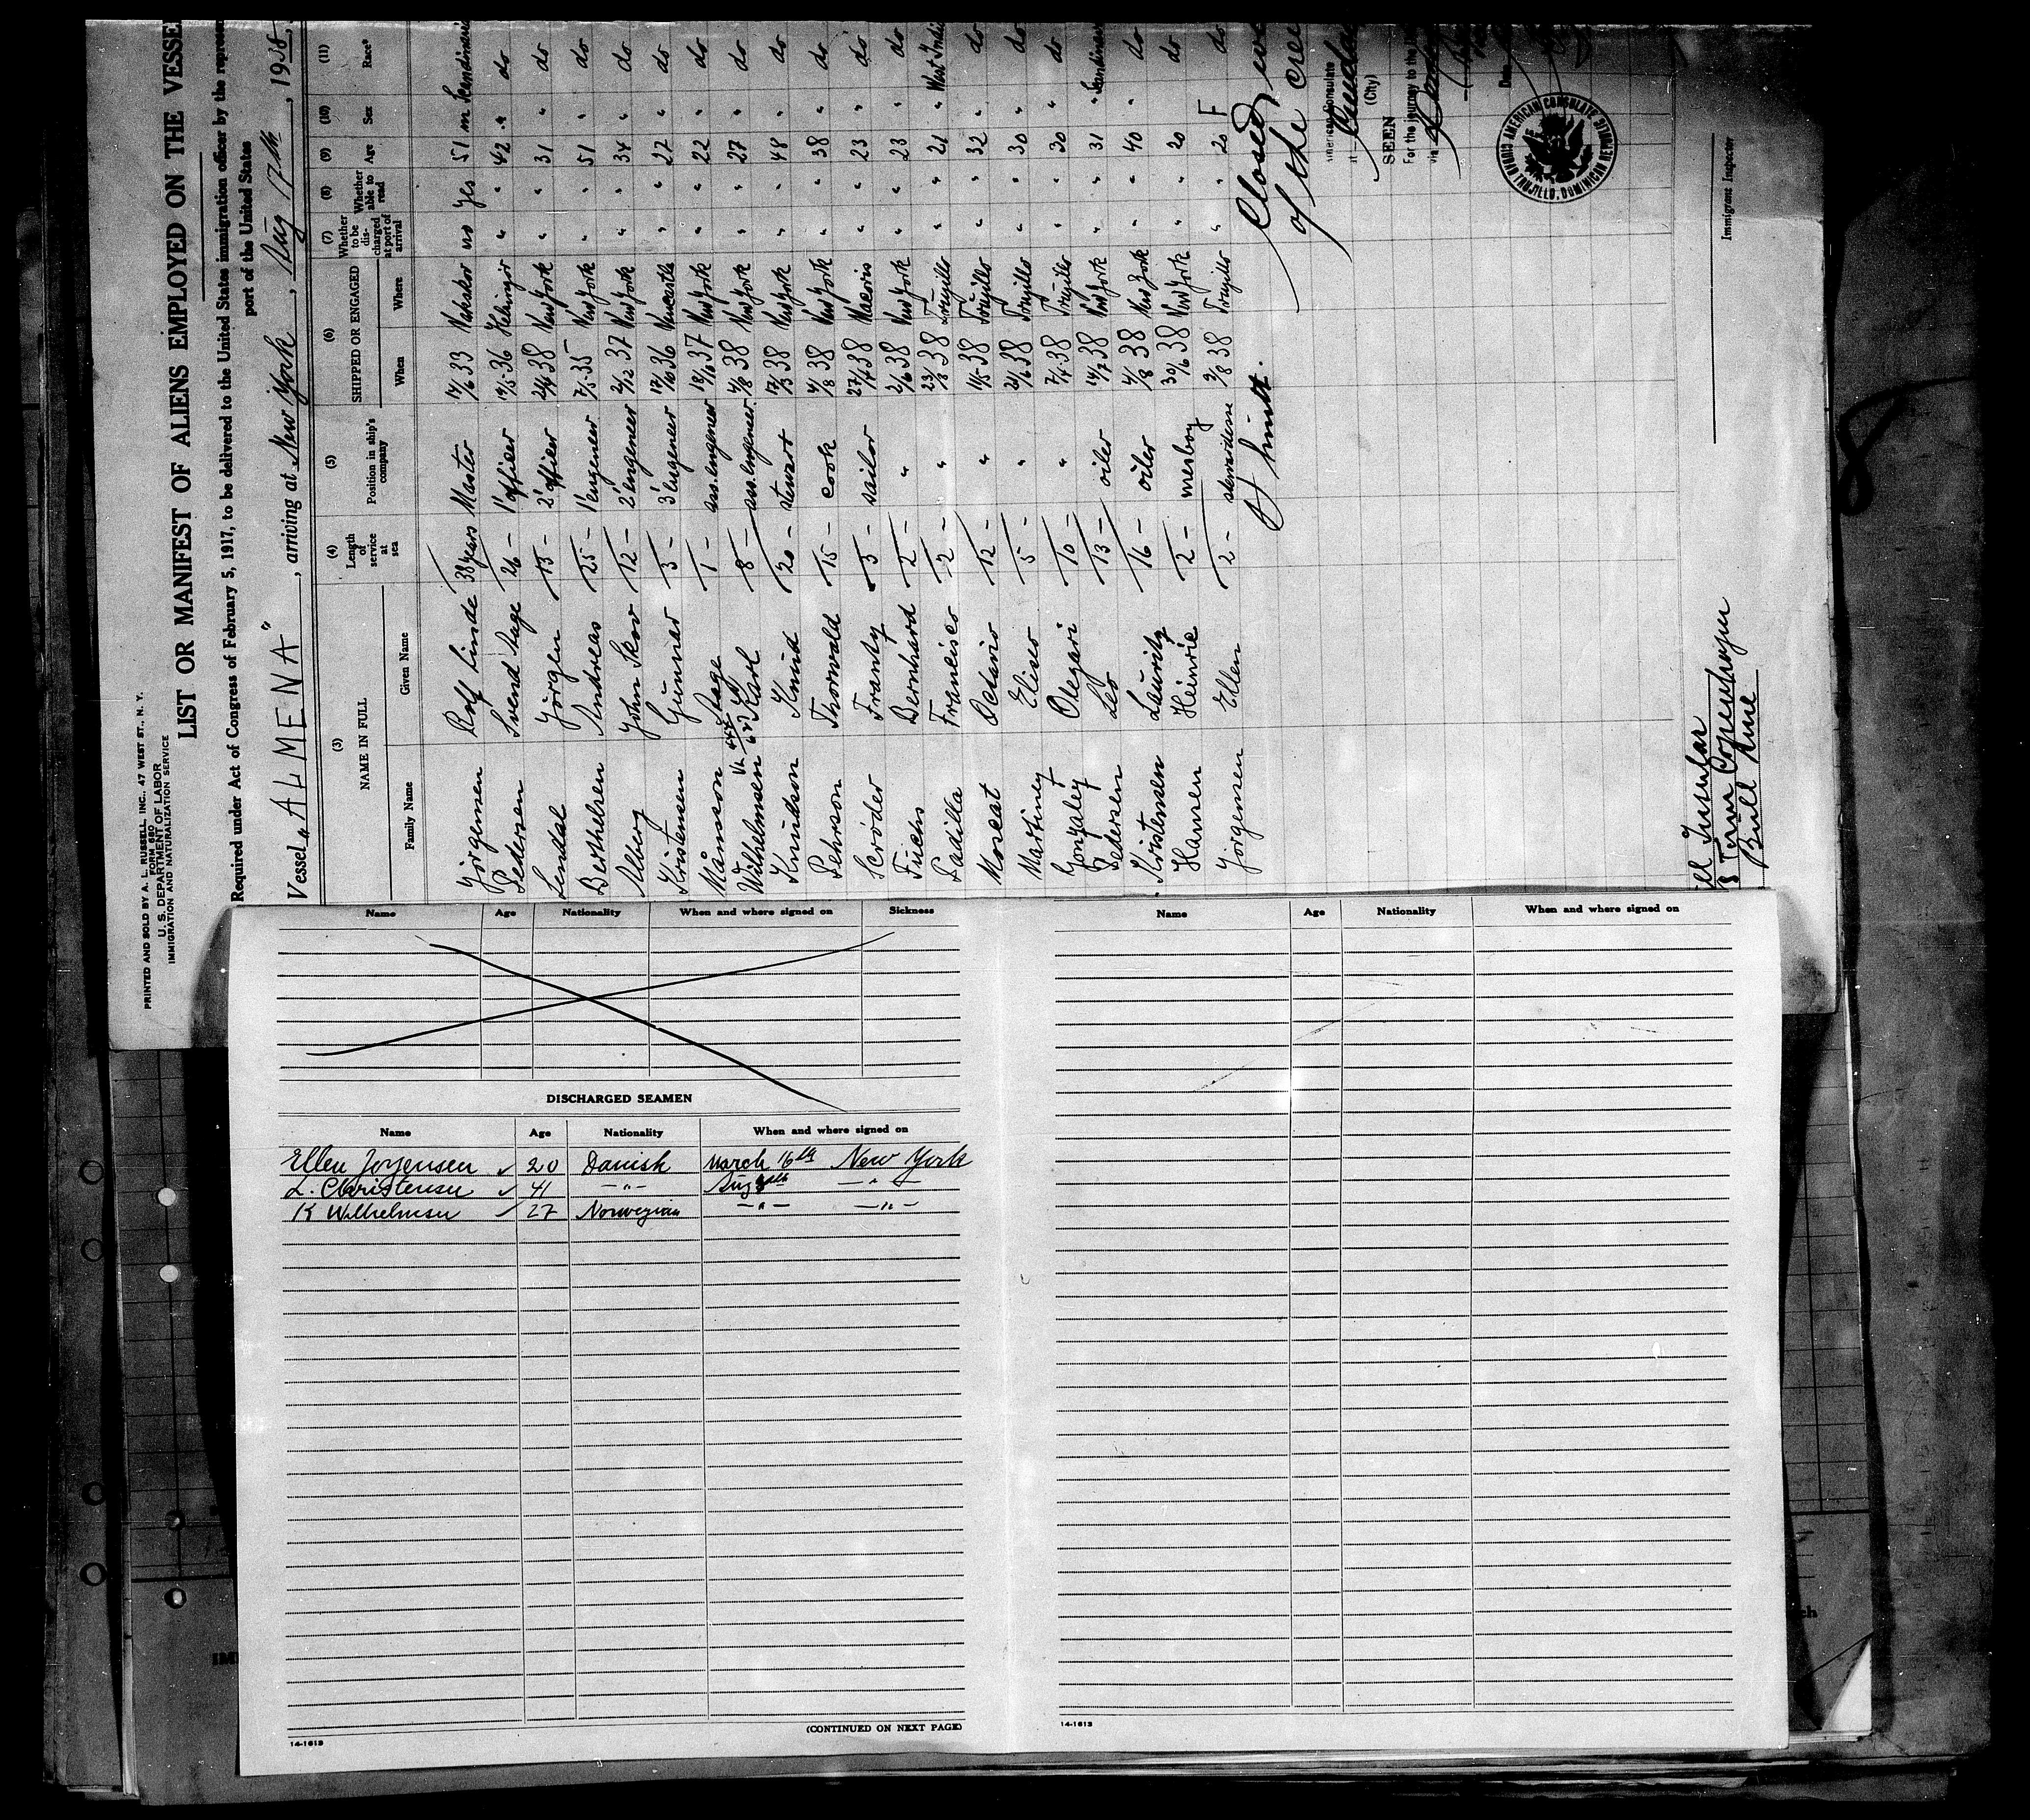 PRINTED AND SOLD BY A. L. RUSSELL, INC., 47 WEST ST., N. Y.
FORM 680
U. S. DEPARTMENT OF LABOR
IMMIGRATION AND NATURALIZATION SERVICE
LIST OR MANIFEST OF ALIENS EMPLOYED ON THE VESSE
Required under Act of Congress of February 5, 1917, to be delivered to the United States immigration officer by the represen
port of the United States
Vessel "ALMENA", arriving at New York, Aug 17th, 1938,
(3) (4) (5) (6) (7) (8) (9) (10) (11)
NAME IN FULL Length of service at sea Position in ship's company SHIPPED OR ENGAGED Whether to be discharged at port of arrival Whether able to read Age Sex Race*
Family Name Given Name When Where
Jörgensen Rolf Linde 38 years Master 33 Nakskov no yes 51 m
Pedersen Svend Aage 26 - 1' officer 19/5-36 Helsingör " " 42 " do
Lendal Jörgen 13 - 2' officer 38 New York " " 31 " do
Berthelsen Andreas 25 - 1' engeneer 7/5-35 New York " " 51 " do
Alberg John Skov 12 - 2' engeneer 2/12 37 New York " " 34 " do
Kristensen Gunnar 3 - 3' engeneer 36 Newcastle " " 27 " do
Månsson Aage 1 - ass. engeneer 37 New York " " 22 " do
Wilhelmsen Karl 8 - ass. engeneer 4/8 38 New York " " 27 " do
Knudson Knud 20 - stewart 17/3 38 New York " " 48 " do
Pehrson Thorwald 15 - cook 4/8 38 New York " " 38 " do
Scröder Frantz 3 - sailor 38 Macoris " " 23 " do
Fuchs Bernhard 2 - " 2/6 38 New York " " 23 " do
Padilla Francisco 2 - " 38 Trujillo " " 21 " West Indi
Moscat Octavio 12 - " 38 Trujillo " " 32 " do
Martinez Eliseo 5 - " 38 Trujillo " " 30 " do
Gonzalez Olegari 10 - " 38 Trujillo " " 30 " do
Pedersen Leo 13 - oiler 14/7 38 New York " " 31 "
Kristensen Lauritz 16 - oiler 4/8 38 New York " " 40 " do
Hansen Heinrie 2 - messboy 30/6 38 New York " " 20 do
Jörgensen Ellen 2 - 9/8 38 Trujillo " " 20 F do
Closed
of the crew
American Consulate
at
(City)
SEEN
For the journey to the
via
Date
AMERICAN CONSULATE
CIUDAD TRUJILLO, DOMINICAN REPUBLIC
Immigrant Inspector
Insular
Copenhagen
Bull Line
Name Age Nationality When and where signed on Sickness
DISCHARGED SEAMEN
Name Age Nationality When and where signed on
Ellen Jorgensen 20 Danish March 16th New York
L. Christensen 41 -"- Aug -"-
K Wilhelmsen 27 Norwegian -"- -"-
(CONTINUED ON NEXT PAGE)
14-1613
Name Age Nationality When and where signed on
14-1613